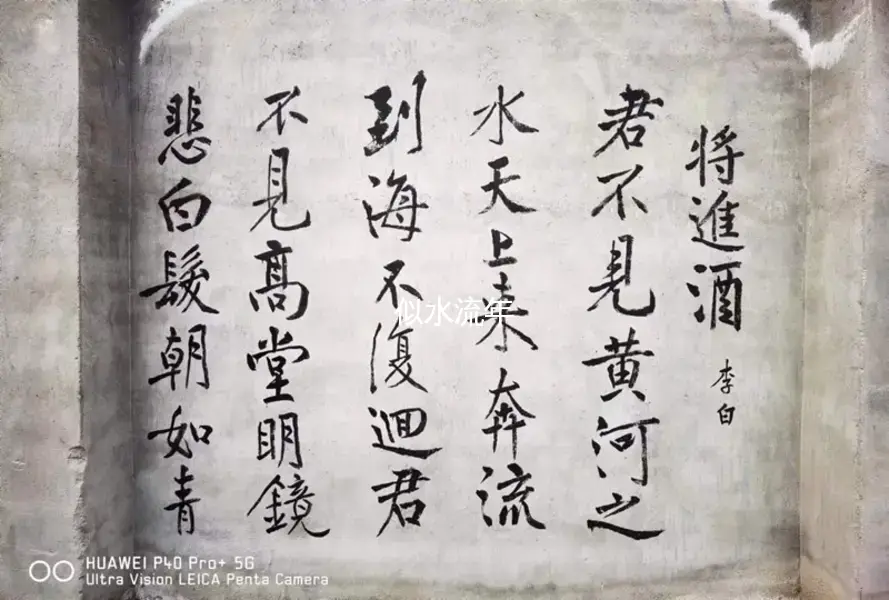 將進酒
李白
君不見黄河之
水天上来奔流
到海不復迴君
不見高堂明鏡
悲白髮朝如青
似水流年
HUAWEI P40 Pro+ 5G
Ultra Vision LEICA Penta Camera